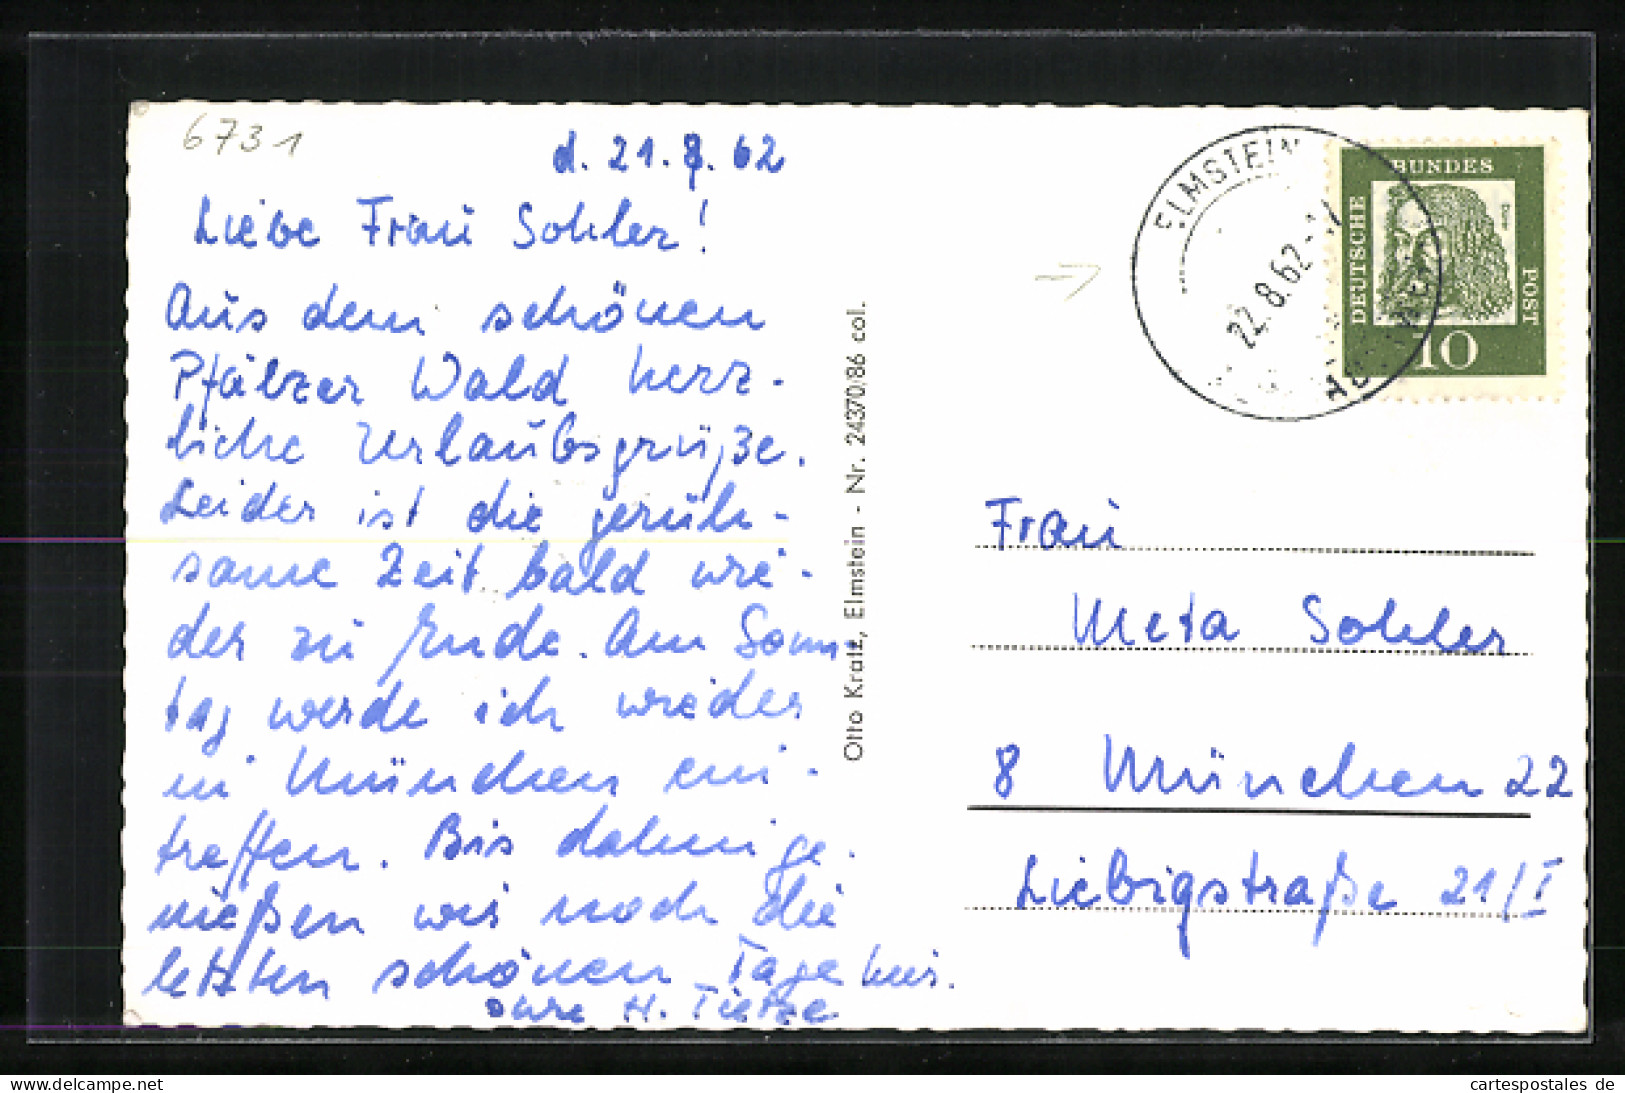 6731
d. 21.8.62
Liebe Frau Sohler!
Aus dem schönen
Pfälzer Wald herz-
liche Urlaubsgrüße.
Leider ist die geruh-
same Zeit bald wie-
der zu Ende. Am Sonn-
tag werde ich wieder
in München ein-
treffen. Bis dahin ge-
nießen wir noch die
letzten schönen Tage hier.
H. Tietze
Otto Kratz, Elmstein - Nr. 24370/86 col.
ELMSTEIN
22.8.62
DEUTSCHE
BUNDES
POST
10
Frau
Meta Sohler
8 München 22
Liebigstraße 21/I
Akpool.de
cartespostales de